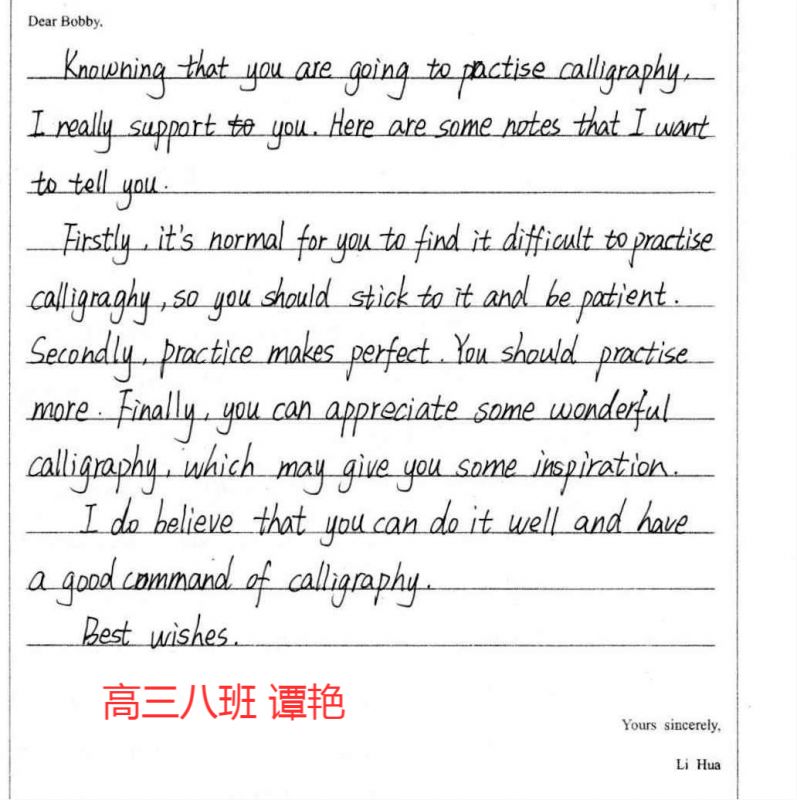 Dear Bobby,
Knowning that you are going to practise calligraphy,
I really support to you. Here are some notes that I want
to tell you.
Firstly, it's normal for you to find it difficult to practise
calligraghy, so you should stick to it and be patient.
Secondly, practice makes perfect. You should practise
more. Finally, you can appreciate some wonderful
calligraphy, which may give you some inspiration.
I do believe that you can do it well and have
a good command of calligraphy.
Best wishes.
高三八班 谭艳
Yours sincerely,
Li Hua